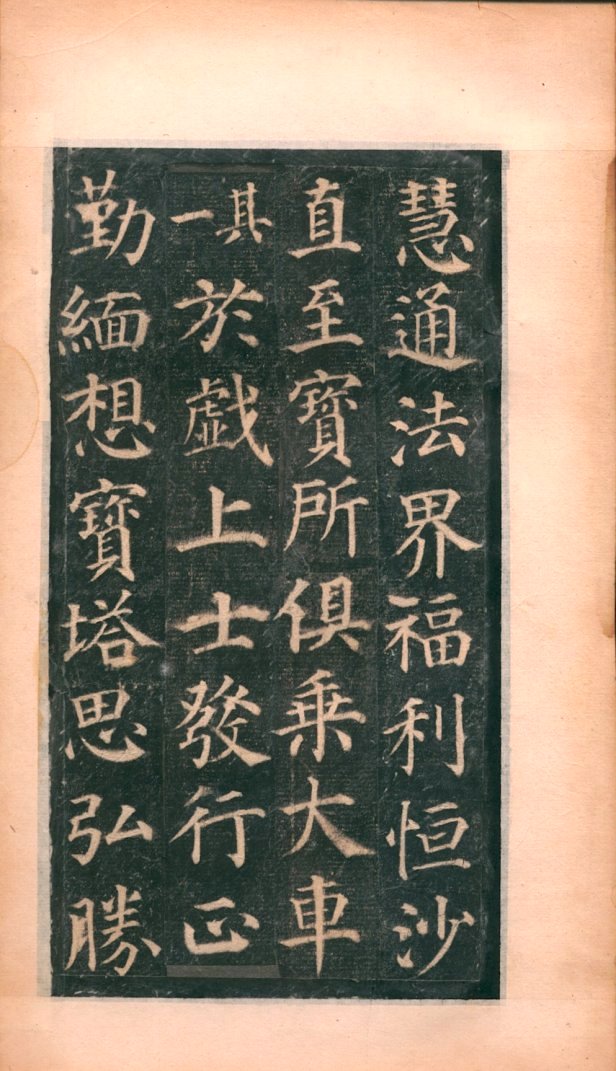 慧通法界福利恒沙
直至寶所俱乘大車
其一於戯上士發行正
勤緬想寶塔思弘勝